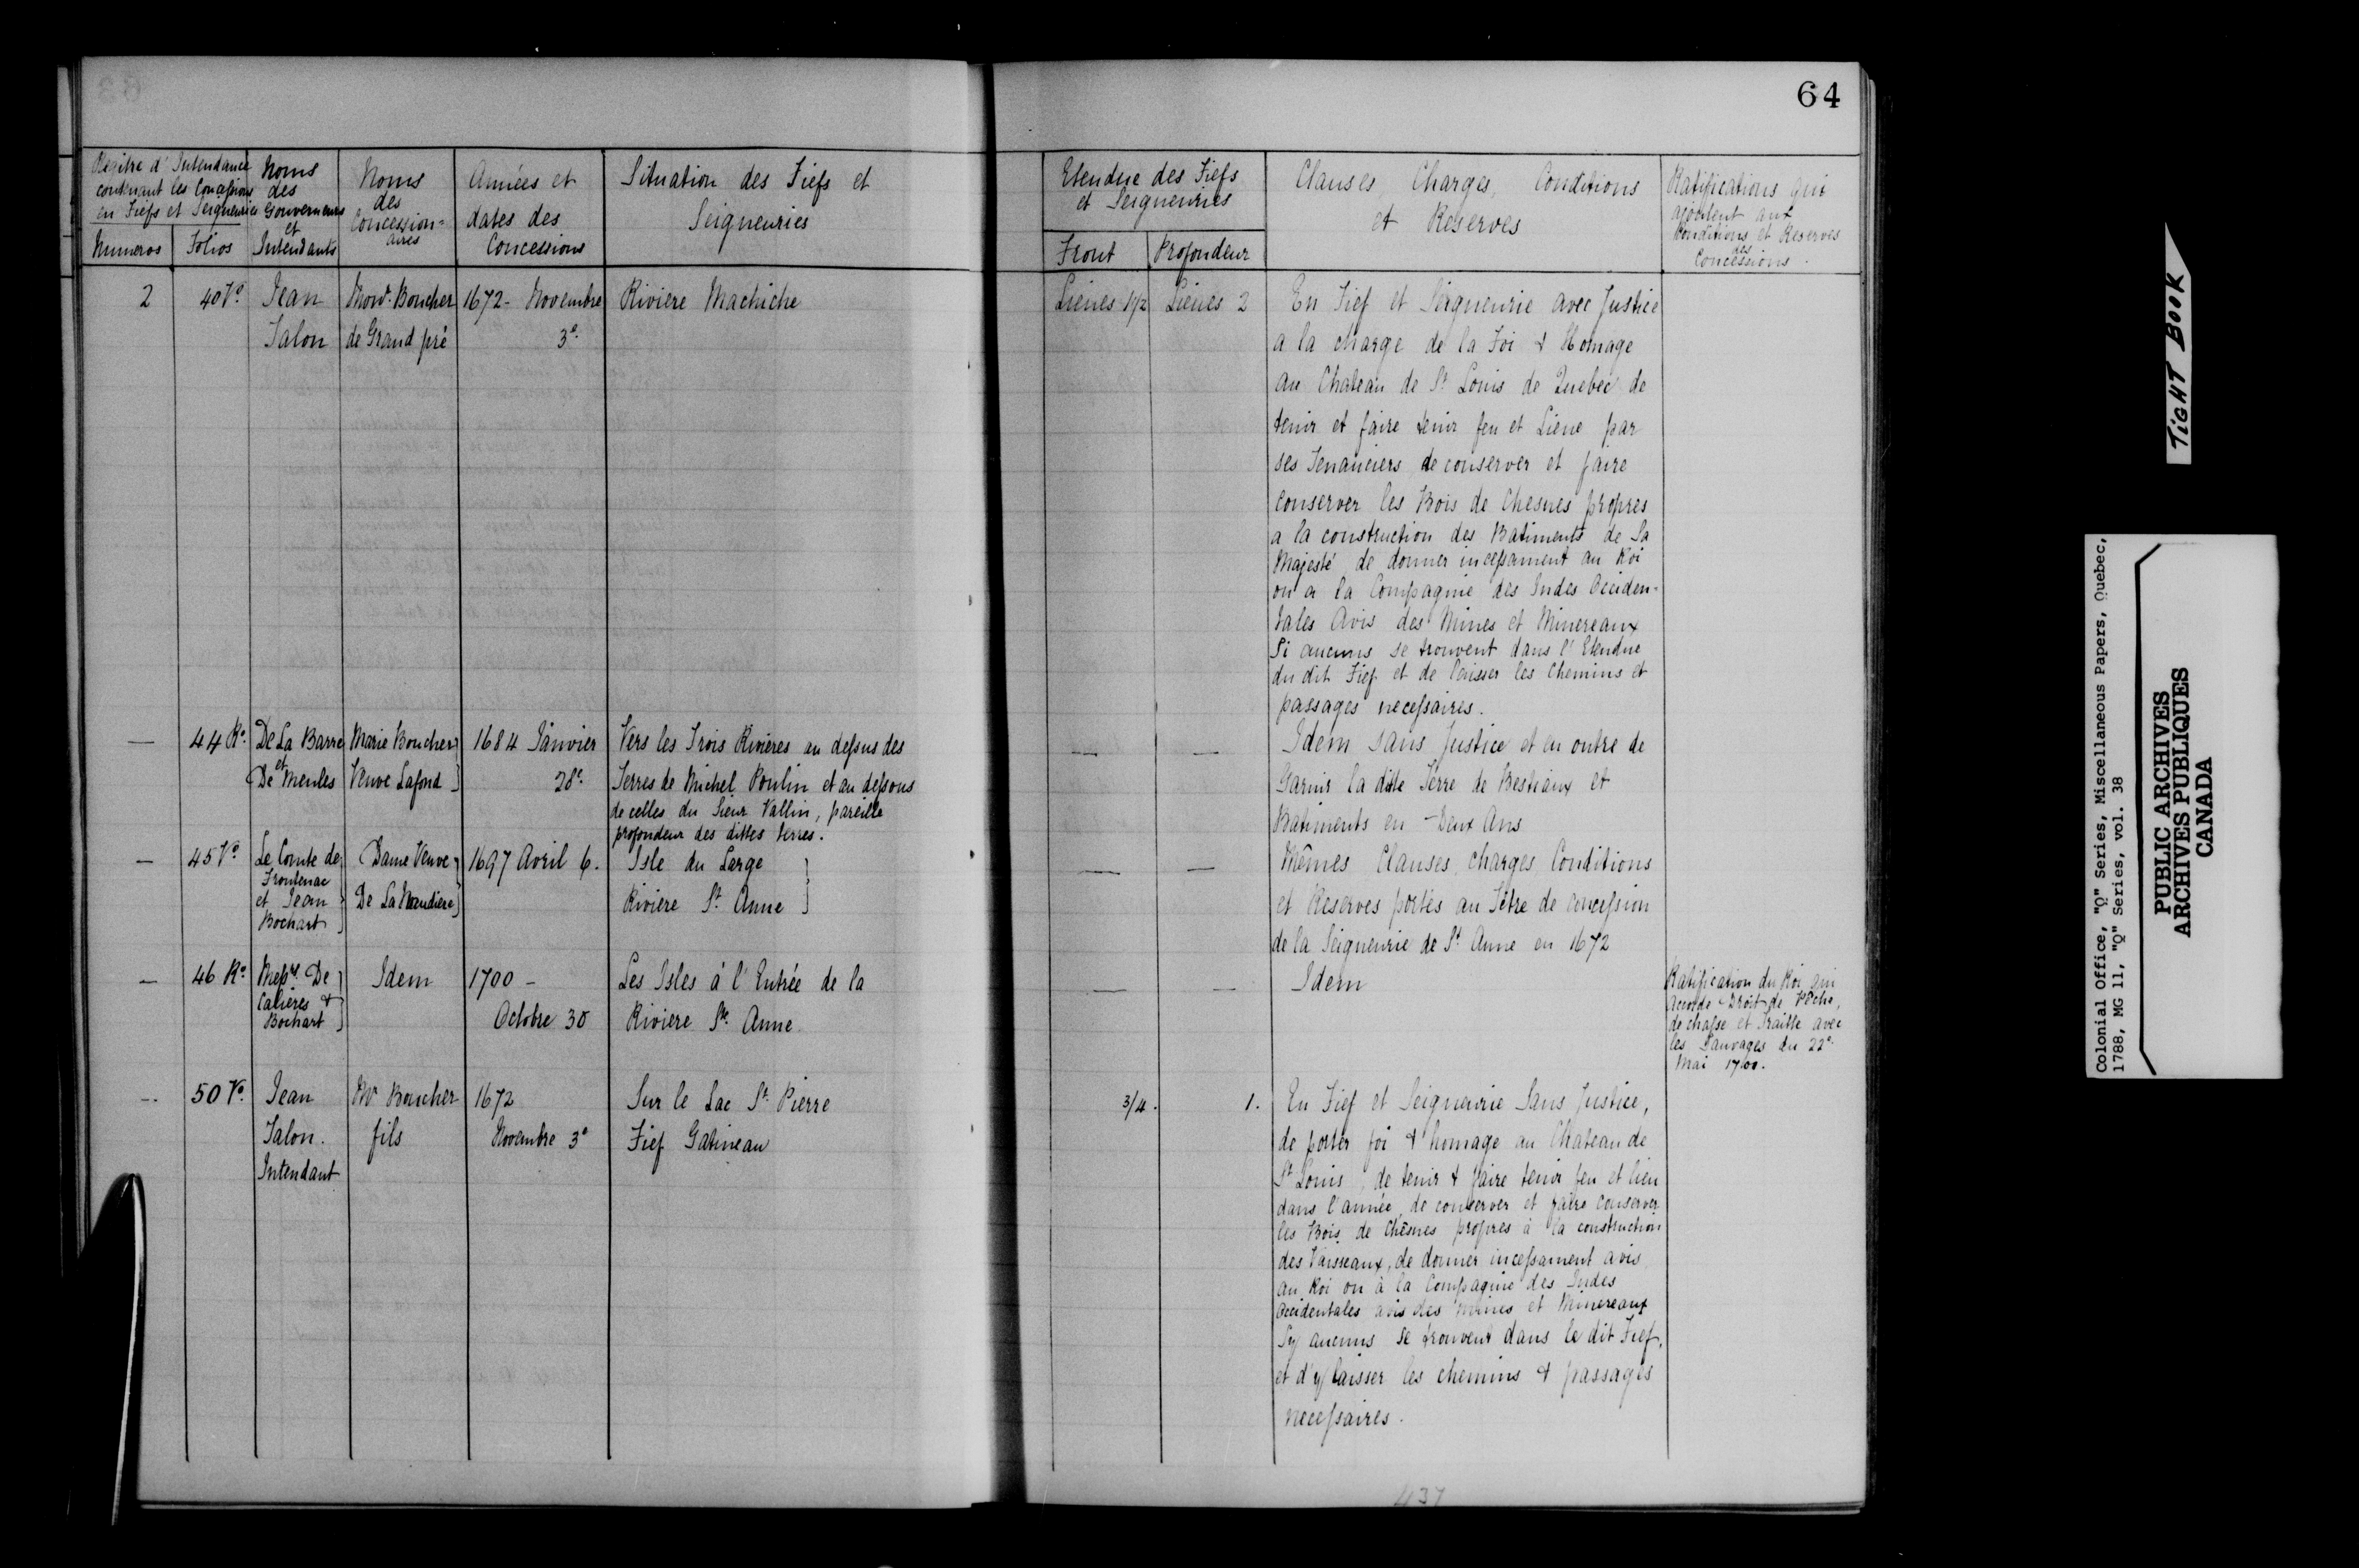 64
Regitre d'Intendance
contenant les Concessions
en Fiefs et Seigneuries
Numeros
Folios
Noms
des
Gouverneurs
et
Intendants
Noms
des
Concession=
aires
Années et
dates des
Concessions
Situation des Fiefs et
Seigneuries
Etendue des Fiefs
et Seigneuries
Front
Profondeur
Clauses, Charges, Conditions
et Reserves
Ratifications qui
ajoutent aux
Conditions et Reserves
des
Concessions.
2
40 Vo
Jean
Talon
Monr. Boucher
de Grand pré
1672 - Novembre
3e.
Riviere Machiche
Lieues 1 1/2
Lieues 2
En Fief et Seigneurie avec Justice
a la charge de la Foi & Homage
au Chateau de St Louis de Quebec de
tenir et faire tenir feu et Lieue par
ses Tenanciers de conserver et faire
conserver les Bois de Chesnes propres
a la construction des Batiments de Sa
Majesté de donner incessament au Roi
ou a la Compagnie des Indes Occiden-
tales Avis des Mines et Minereaux
Si aucuns se trouvent dans l'Etendue
du dit Fief et de laisser les Chemins et
passages necessaires.
—
44 Ro.
De La Barre
et
De Meules
Marie Boucher
Veuve Lafond
1684 Janvier
28e.
Vers les Trois Rivières au dessus des
Terres de Michel Poulin et au dessous
de celles du Sieur Vallin, pareille
profondeur des dittes terres.
—
—
Idem sans Justice et en outre de
Garnir la ditte Terre de Bestiaux et
Batiments en Deux Ans
—
45 Vo
Le Comte de
Frontenac
et Jean
Bochart
Dame Veuve
De La Naudiere
1697 Avril 6.
Isle du Large
Riviere St. Anne
—
—
Mêmes Clauses, charges Conditions
et Reserves portés au Titre de concession
de la Seigneurie de St Anne en 1672
—
46 Ro
Messrs. De
Calières &
Bochart
Idem
1700 -
Octobre 30
Les Isles à l'Entrée de la
Riviere Ste. Anne
—
—
Idem
Ratification du Roi qui
accorde Droit de Pêche,
de chasse et Traitte avec
les Sauvages du 22e.
Mai 1700.
--
50 Vo.
Jean
Talon.
Intendant
Mr Boucher
fils
1672
Novembre 3e
Sur le Lac St. Pierre
Fief Gatineau
3/4.
1.
En Fief et Seigneurie Sans Justice,
de porter foi & homage au Chateau de
St Louis, de tenir & faire tenir feu et lieu
dans l'année, de conserver et faire conserver
les Bois de Chêsnes propres à la construction
des Vaisseaux, de donner incessament avis
au Roi ou à la Compagnie des Indes
Occidentales avis des Mines et Minereaux
Sy aucuns se trouvent dans le dit Fief,
et d'y laisser les chemins & passages
necessaires.
437
TIGHT BOOK
Colonial Office, "Q" Series, Miscellaneous Papers, Quebec,
1788, MG 11, "Q" Series, vol. 38
PUBLIC ARCHIVES
ARCHIVES PUBLIQUES
CANADA